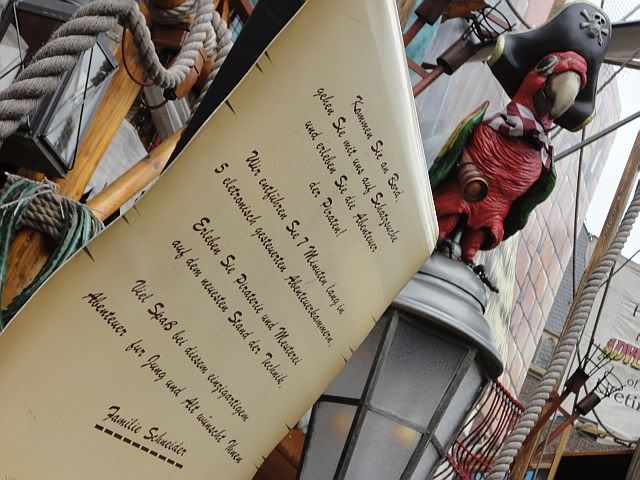 Kommen Sie an Bord,
gehen Sie mit uns auf Schatzsuche
und erleben Sie die Abenteuer
der Piraten!
Wir entführen Sie 7 Minuten lang in
5 eletronisch gesteuerten Abenteuerkammern.
Erleben Sie Piraterie und Meuterei
auf dem neuesten Stand der Technik.
Viel Spaß bei diesem einzigartigen
Abenteuer für Jung und Alt wünscht Ihnen
Familie Schneider